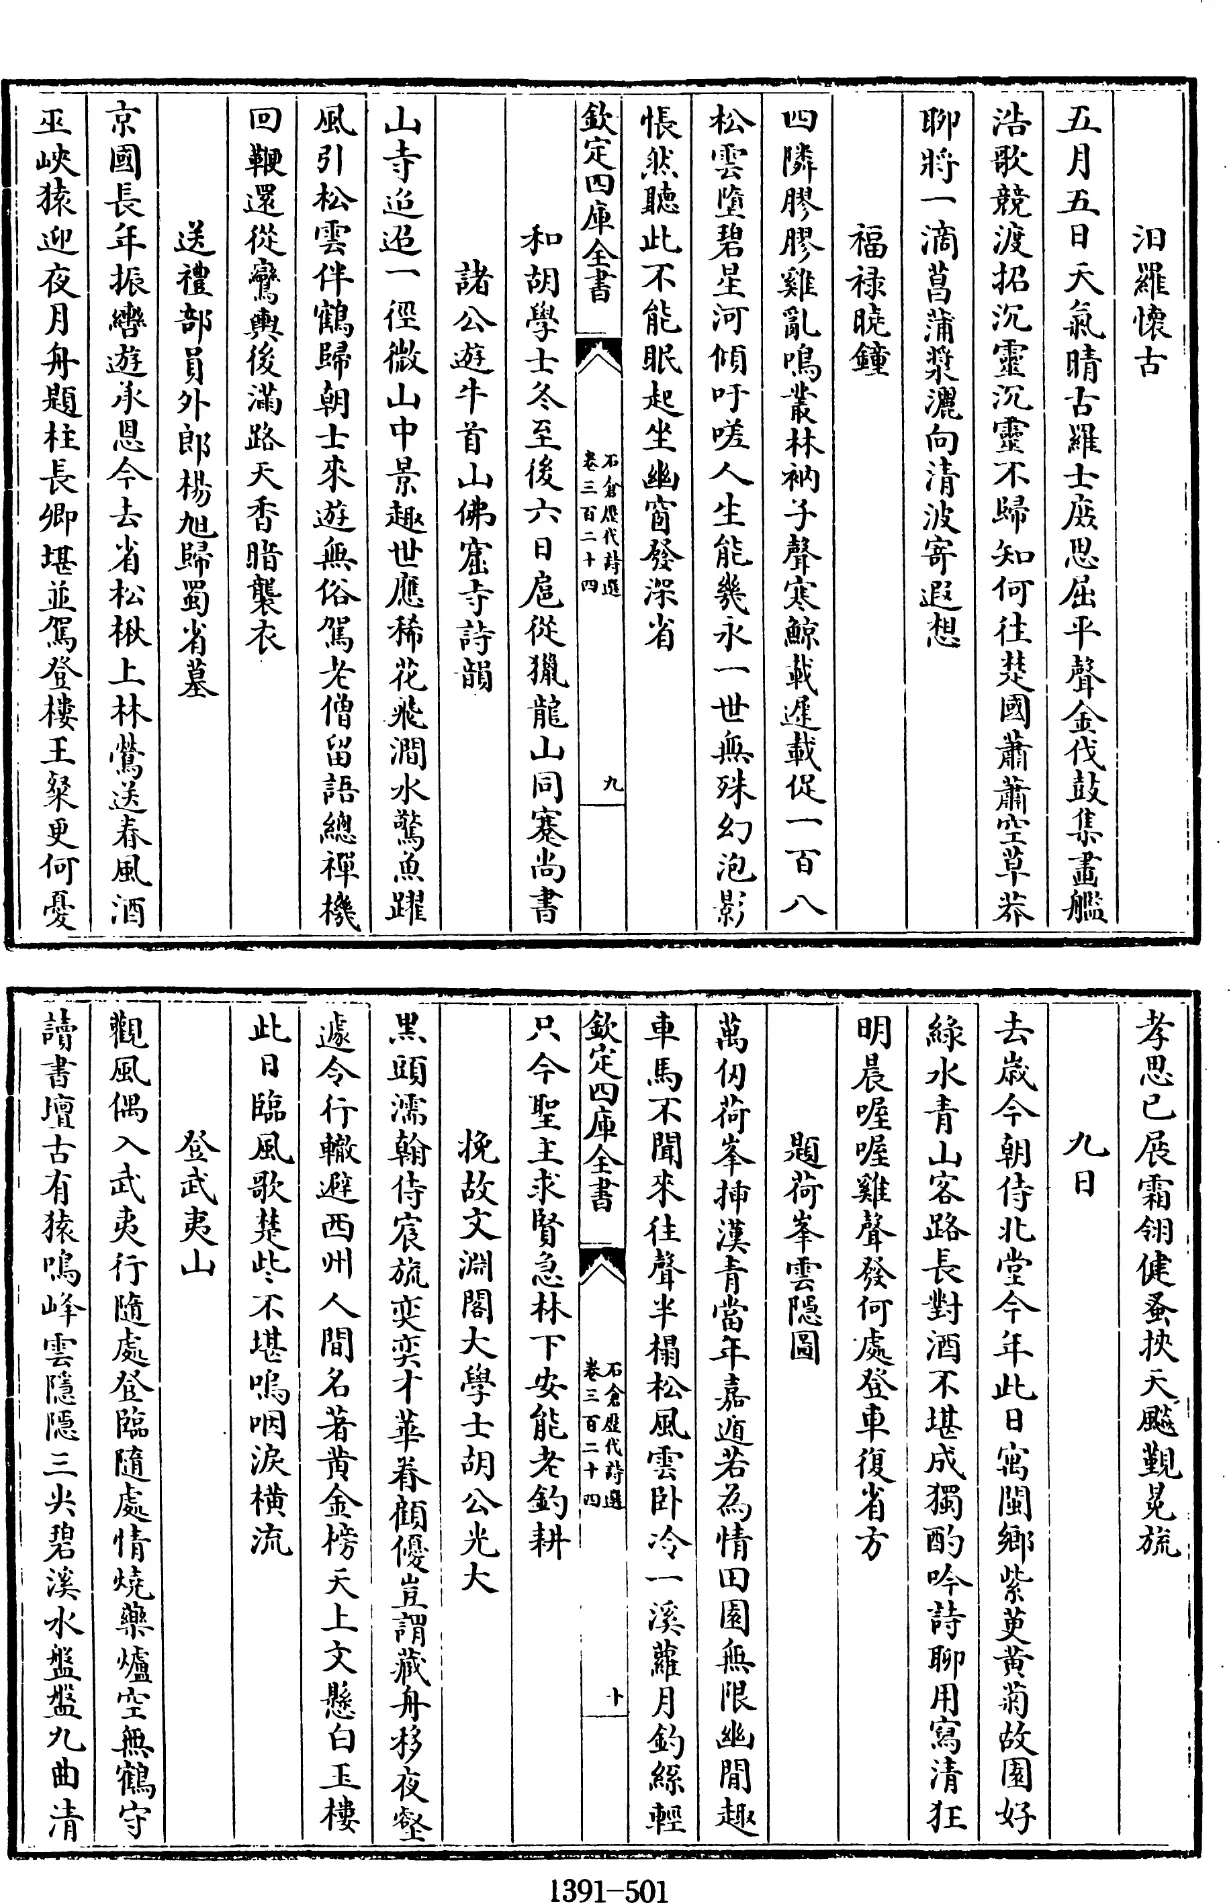 汨羅懷古
五月五日天氣晴古羅士庶思屈平聲金伐鼓集畫艦
浩歌競渡招沉靈沉靈不歸知何徃楚國蕭蕭空草莽
聊將一滴菖蒲漿灑向清波寄遐想
福禄曉鐘
四隣膠膠雞亂鳴叢林衲子聲寒鯨載遲載促一百八
松雲墮碧星河傾吁嗟人生能幾永一世無殊幻泡影
悵然聽此不能眠起坐幽窗發深省
欽定四庫全書
石倉歷代詩選
卷三百二十四
九
和胡學士冬至後六日扈從獵龍山同蹇尚書
諸公遊牛首山佛窟寺詩韻
山寺迢迢一徑微山中景趣世應稀花飛澗水驚魚躍
風引松雲伴鶴歸朝士來遊無俗駕老僧留語總禪機
回鞭還從鸞輿後滿路天香暗襲衣
送禮部員外郎楊旭歸蜀省墓
京國長年振轡遊承恩今去省松楸上林鶯送春風酒
巫峽猿迎夜月舟題柱長卿堪並駕登樓王粲更何憂
孝思已展霜翎健蚤挾天飈覲冕旒
九日
去歲今朝侍北堂今年此日寓閩鄉紫萸黄菊故園好
綠水青山客路長對酒不堪成獨酌吟詩聊用寫清狂
明晨喔喔雞聲發何處登車復省方
題荷峯雲隱圖
萬仞荷峯揷漢青當年嘉遁若為情田園無限幽閒趣
車馬不聞來往聲半榻松風雲卧冷一溪蘿月釣絲輕
欽定四庫全書
石倉歷代詩選
卷三百二十四
十
只今聖主求賢急林下安能老釣耕
挽故文淵閣大學士胡公光大
黑頭濡翰侍宸旒奕奕才華眷顧優豈謂藏舟移夜壑
遽令行轍避西州人間名著黄金榜天上文懸白玉樓
此日臨風歌楚些不堪嗚咽淚横流
登武夷山
觀風偶入武夷行隨處登臨隨處情燒藥爐空無鶴守
讀書壇古有猿鳴峰雲隱隱三尖碧溪水盤盤九曲清
1391-501